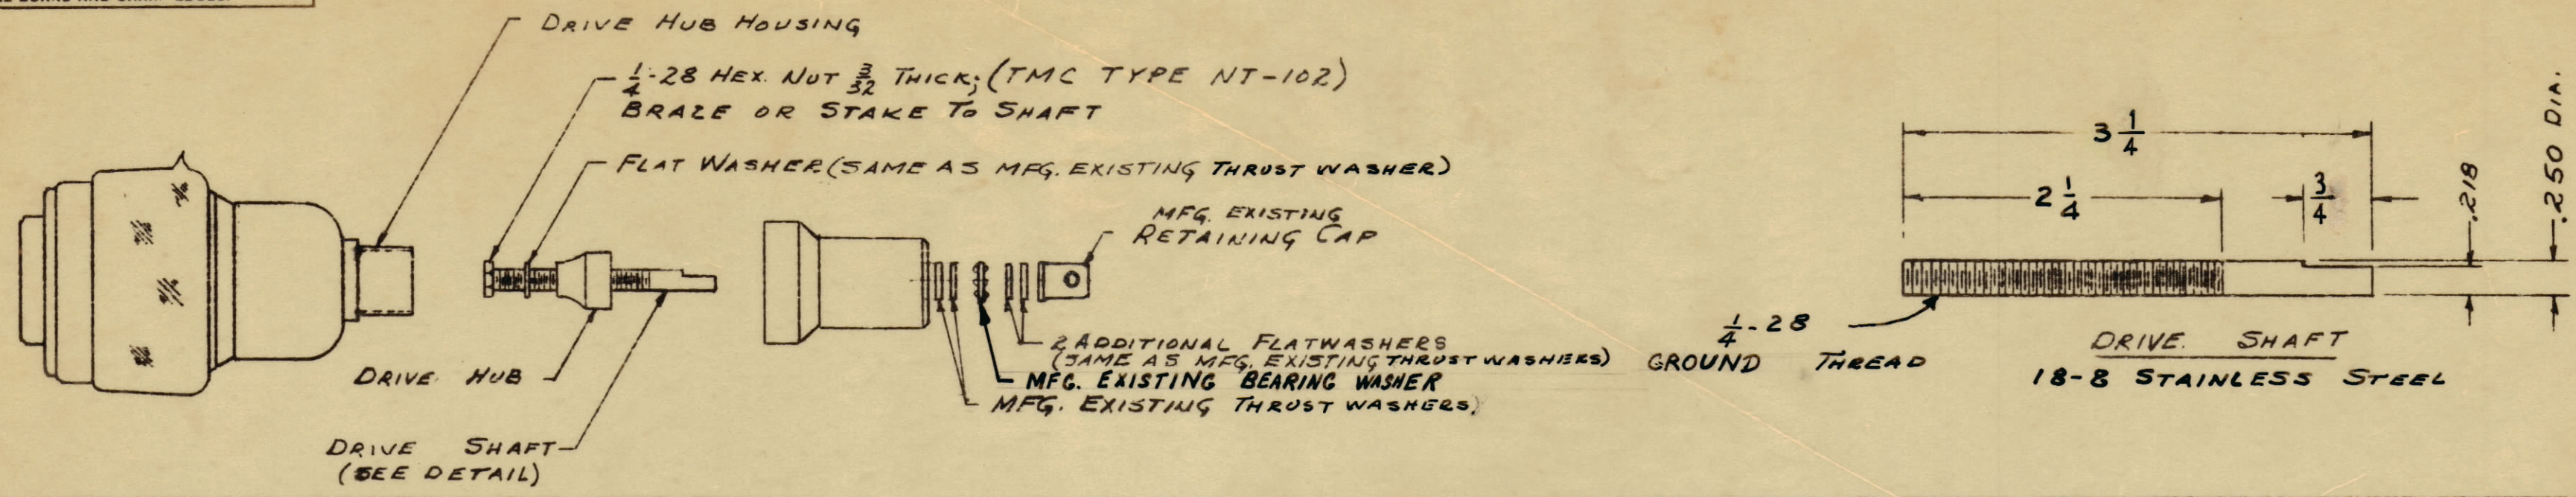 DRIVE HUB HOUSING
1/4-28 HEX. NUT 3/32 THICK; (TMC TYPE NT-102)
BRAZE OR STAKE TO SHAFT
FLAT WASHER (SAME AS MFG. EXISTING THRUST WASHER)
MFG. EXISTING
RETAINING CAP
2 ADDITIONAL FLATWASHERS
(SAME AS MFG. EXISTING THRUST WASHERS)
MFG. EXISTING BEARING WASHER
MFG. EXISTING THRUST WASHERS)
DRIVE HUB
DRIVE SHAFT
(SEE DETAIL)
3 1/4
2 1/4
3/4
.218
.250 DIA.
1/4-28
GROUND THREAD
DRIVE SHAFT
18-8 STAINLESS STEEL